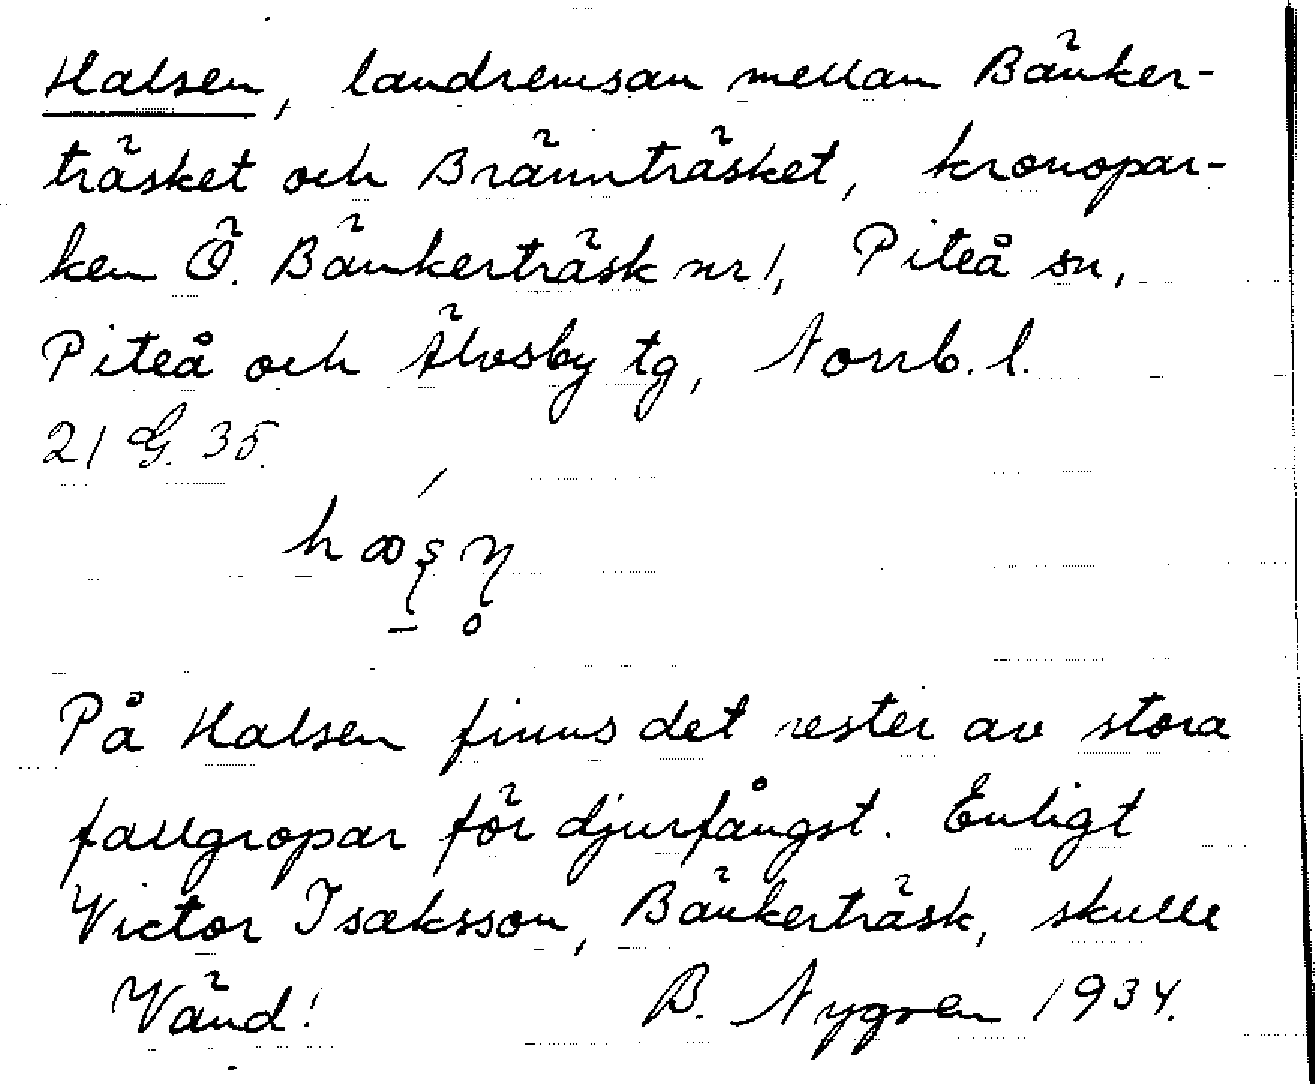 Halsen, landremsan mellan Bänker-
träsket och Brännträsket, kronopar-
ken Ö. Bänkerträsk nr 1, Piteå sn,
Piteå och Älvsby tg, Norrb. l.
21 G. 35.
På Halsen finns det rester av stora
fallgropar för djurfångst. Enligt
Victor Isaksson, Bänkerträsk, skulle
Vänd! B. Nygren 1934.